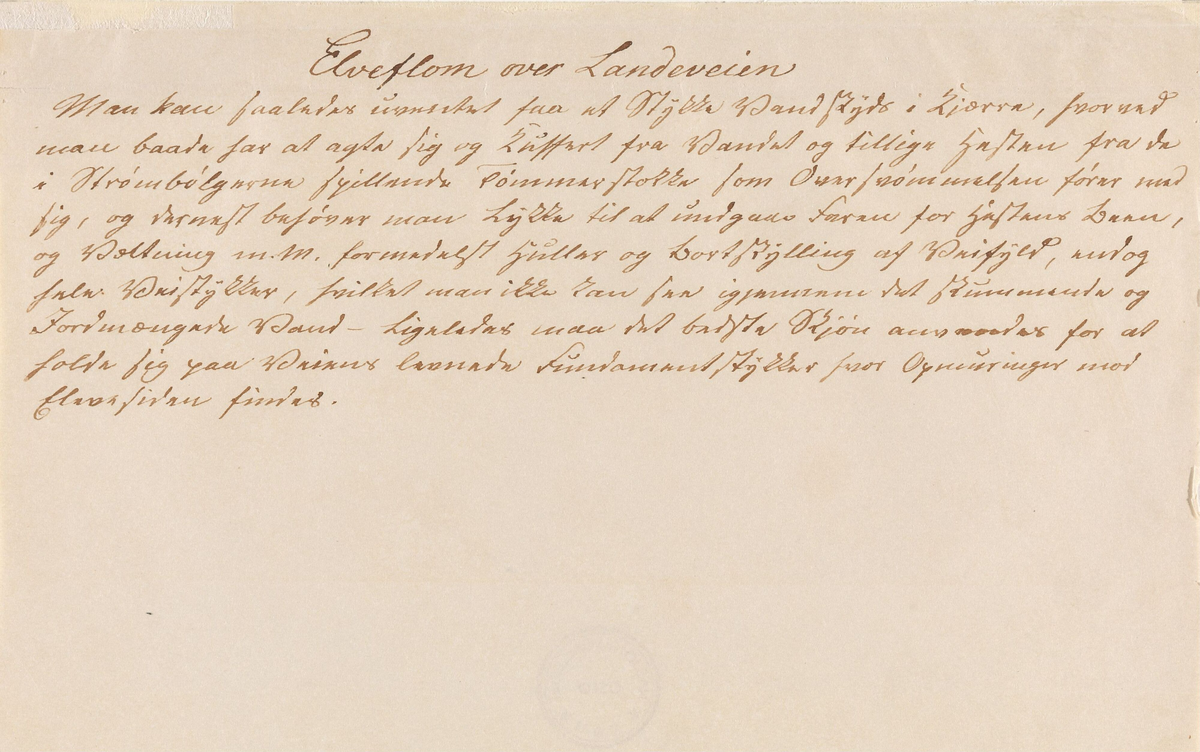 Elveflom over Landeveien
Man kan saaledes uventet faa et Stykke Vandskyds i Kjærre, hvorved
man baade har at agte sig og Kuffert fra Vandet og tillige Hesten fra de
i Strømbølgerne spillende Tømmerstokke som Oversvømmelsen fører med
sig, og dernest behøver man Lykke til at undgaae Faren for Hestens Been,
og Væltning m.V. formedelst Huller og Bortskylling af Veifyld, endog
hele Veistykker, hvilket man ikke kan see igjennem det skummende og
Jordmængede Vand – Ligeledes maa det bedste Skjøn anvendes for at
holde sig paa Veiens levnede Fundamentstykker hvor Opmuringer mod
Elvesiden findes.